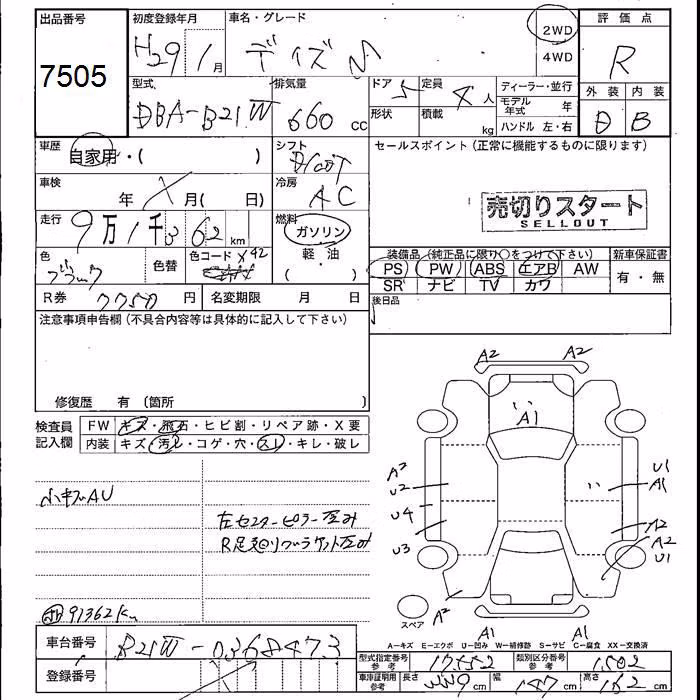 出品番号 初度登録年月 車名・グレード 2WD 評価点
7505 H29 1月 デイズ M 4WD R
型式 排気量 ドア 定員 ディーラー・並行 外装 内装
DBA-B21W 660cc 5 4人 モデル年式 年 D B
形状 積載 kg ハンドル 左・右
車歴 シフト セールスポイント (正常に機能するものに限ります)
自家用・( )
車検 冷房 売切りスタート
年 月( 日) AC SELLOUT
走行 燃料
9万1千362km ガソリン
装備品 (純正品に限り○をつけて下さい) 新車保証書
色 色替 色コード X42 軽・油 PS PW ABS エアB AW 有・無
ブラック ( ) SR ナビ TV カワ
R券 7750円 名変期限 月 日 後日品
注意事項申告欄 (不具合内容等は具体的に記入して下さい)
修復歴 有 (箇所 )
検査員記入欄 FW キズ・飛石・ヒビ割・リペア跡・X要
内装 キズ・汚レ・コゲ・穴・スレ・キレ・破レ
A2 A2
A1
A2 U1
U2 A1
U4
U3 A2
A2
U1
小キズAU
左センターピラー歪み
R足廻りブラケット歪み
A2
スペア
91362km
A1 A1
A-キズ E-エクボ U-凹み W-補修跡 S-サビ C-腐食 XX-交換済
車台番号 B21W-0368473
型式指定番号 参考 17552 類別区分番号 参考 1502
登録番号
車庫証明用 参考 長さ 339cm 幅 147cm 高さ 162cm